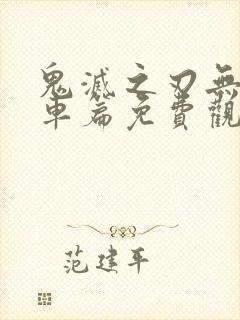 鬼滅之刃無
車篇免費觀
范建平